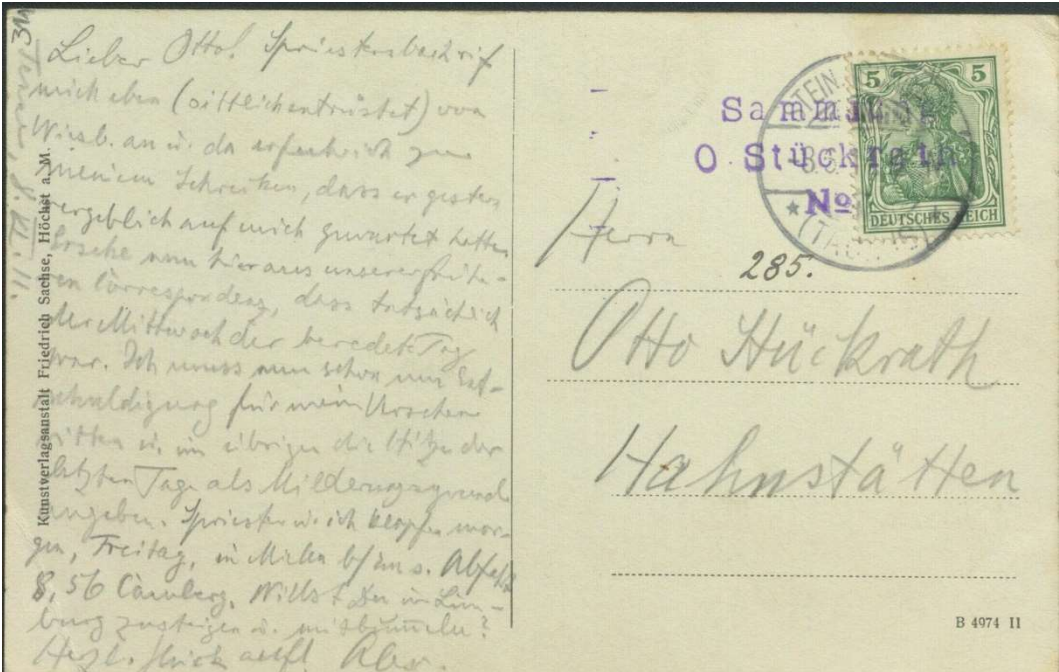 Lieber Otto! Spriestersbach rief
mich eben (sittlich entrüstet) von
Wiesb. an u. da erfuhr ich zu
meinem Schrecken, dass er gestern
vergeblich auf mich gewartet hatte.
nun hieraus unserer
Correspondenz, dass tatsächlich
der Mittwoch der beredete Tag
war. Ich muss nun schon um Ent-
schuldigung für mein
bitten u. im übrigen die Hitze der
letzten Tage als Milderungsgrund
angeben. Spriester u. ich klopfen mor-
gen, Freitag, in Abfahrt
8,56 Camberg. Willst Du in Lim-
burg zusteigen u. mitbummeln?
Herzl. Glück auf!
8. VI. 11.
Kunstverlagsanstalt Friedrich Sachse, Höchst a. M.
Sammlung
O. Stückrath
No
285.
5 5
DEUTSCHES REICH
(TAUNUS)
Herrn
Otto Stückrath
Hahnstätten
B 4974 II